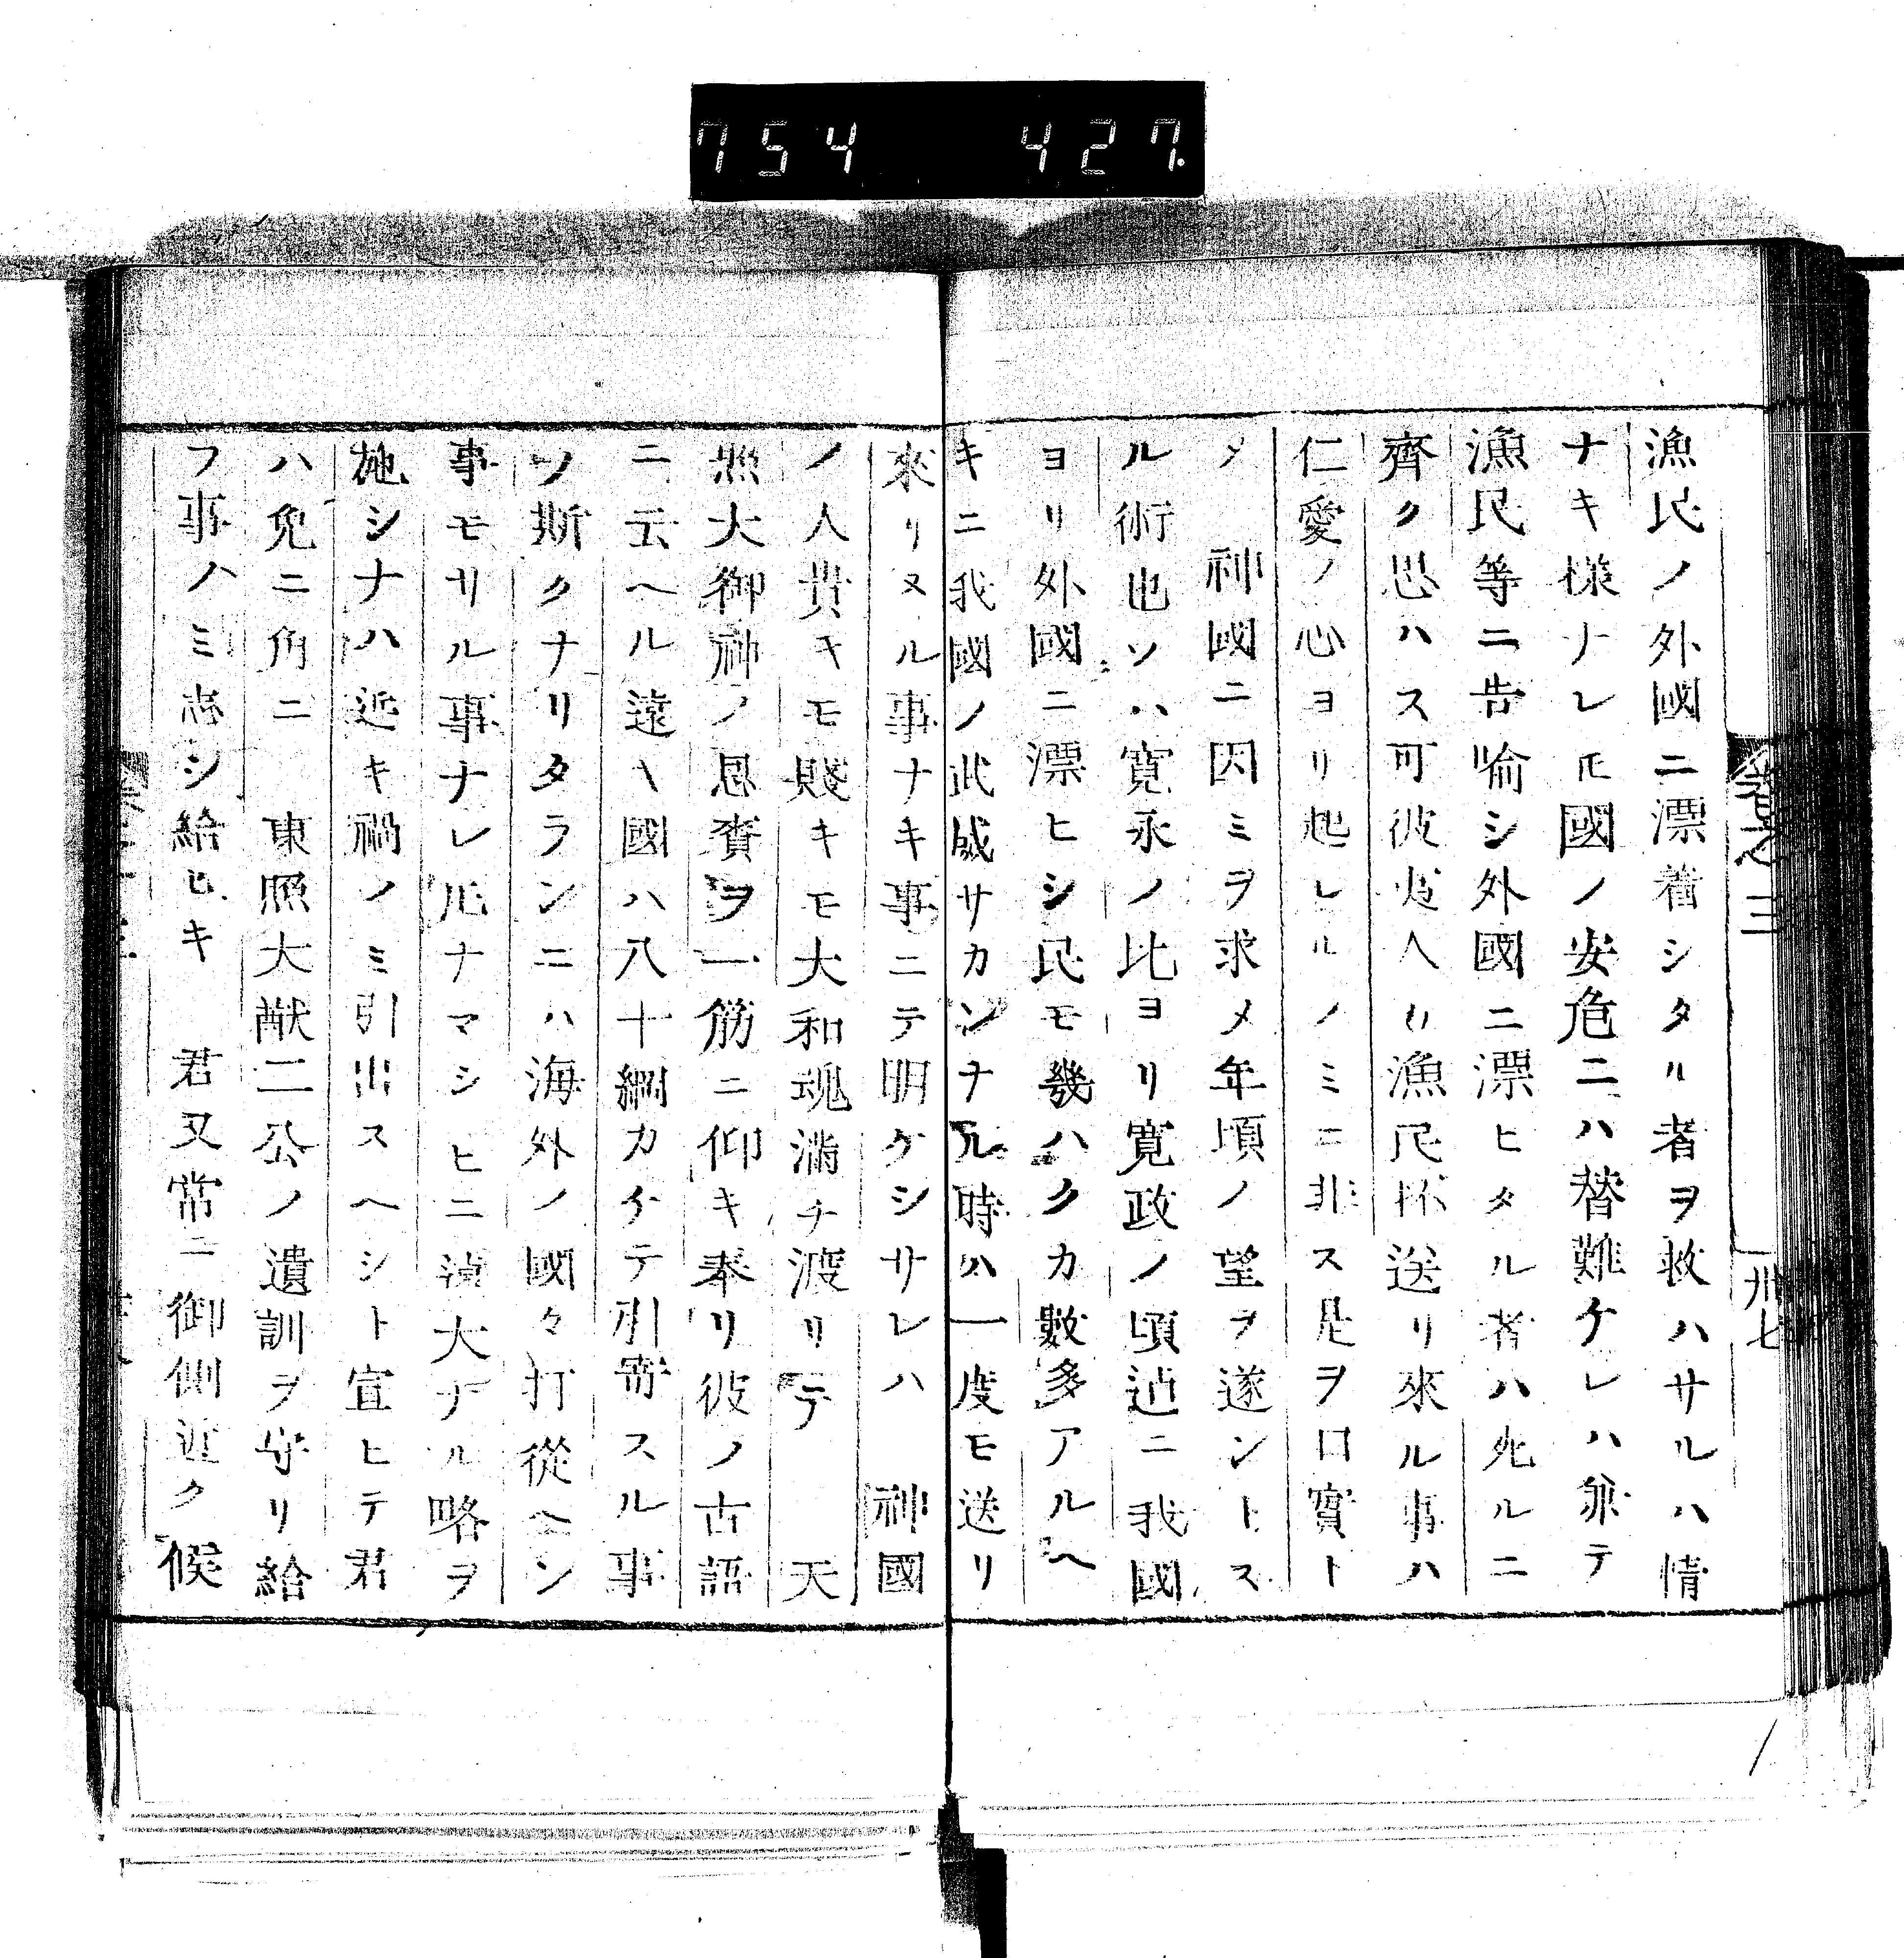 754 427.
卷之三
卅七
漁民ノ外國ニ漂着シタル者ヲ救ハサルハ情
ナキ樣ナレ𪜈國ノ安危ニハ替難ケレハ兼テ
漁民等ニ告喻シ外國ニ漂ヒタル者ハ死ルニ
齊ク思ハス可彼夷人カ漁民抔送リ來ル事ハ
仁愛ノ心ヨリ起レルノミニ非ス是ヲ口實ト
メ 神國ニ因ミヲ求メ年頃ノ望ヲ遂ントス
ル術也ソハ寬永ノ比ヨリ寬政ノ頃迠ニ我國
ヨリ外國ニ漂ヒシ民モ幾ハクカ數多アルヘ
キニ我國ノ武威サカンナル時ハ一度モ送リ
來リヌル事ナキ事ニテ明ケシサレハ 神國
ノ人貴キモ賤キモ大和魂滿チ渡リテ 天
照大御神ノ恩賚ヲ一筋ニ仰キ奉リ彼ノ古語
ニ云ヘル遠キ國ハ八十綱カケテ引寄スル事
ノ斯クナリタランニハ海外ノ國々打從ヘン
事モサル事ナレ𪜈ナマシヒニ 大ナル略ヲ
施シナハ近キ禍ノミ引出スヘシト宣ヒテ君
ハ兎ニ角ニ 東照大猷二公ノ遺訓ヲ守リ給
フ事ノミ志シ給ヒキ 君又常ニ御側近ク候